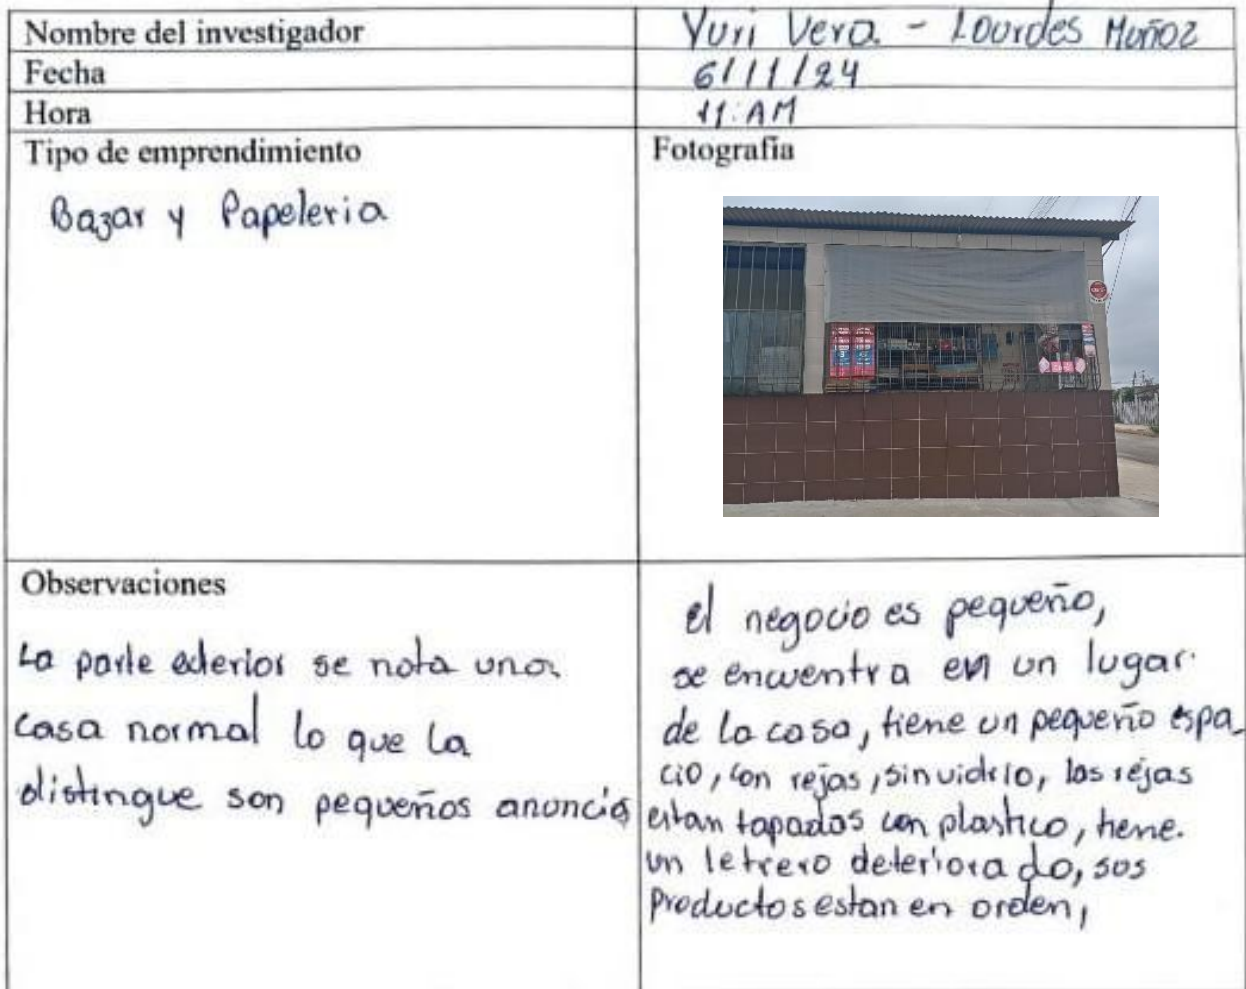 Nombre del investigador
Yuri Vera - Lourdes Muñoz
Fecha
6/11/24
Hora
11:AM
Tipo de emprendimiento
Bazar y Papeleria
Fotografía
Observaciones
La parte exterior se nota una
casa normal lo que la
distingue son pequeños anuncios
el negocio es pequeño,
se encuentra en un lugar
de la casa, tiene un pequeño espa_
cio, con rejas, sin vidrio, las rejas
estan tapados con plastico, tiene.
un letrero deteriorado, sus
productos estan en orden,